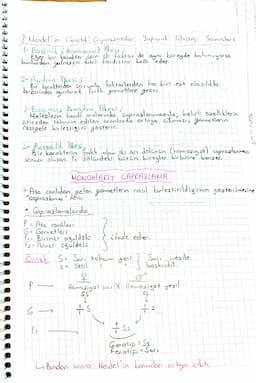 Mendel'in Genetik Çaprazlamalar Yaparak Ulaştığı Sonuçlar
1- Baskınlık (Dominantlık) İlkesi;
Eğer bir karakter için iki faktör de aynı bireyde bulunuyorsa
bunlardan yalnızca biri kendisini belli eder.
2- Ayrılma İlkesi;
Bir karakterden sorumlu faktörlerden her biri eşit olasılıkla
birbirinden ayrılarak farklı gametlere geçer.
3- Bağımsız Dağılım İlkesi;
Melezlerin kendi aralarında çaprazlanmasında, belirli özelliklerin
önceden tahmin edilen oranlarda ortaya çıkması, gametlerin
rastgele birleştiğini gösterir.
4- Benzerlik İlkesi;
Bir karakterin farklı iki arı dölünün (homozigot) çaprazlanması
sonucu oluşan F1 dölündeki bütün bireyler birbirine benzer.
MONOHİBRİT ÇAPRAZLAMA
Ata canlıdan gelen gametlerin nasıl birleştirildiğinin gösterilmesine
"çaprazlama" denir.
Çaprazlamalarda
P = Ata canlıları
G = Gametleri
F1 = Birinci oğul dölü
F2 = İkinci oğul dölü
ifade eder.
Örnek S = Sarı tohum geni Sarı, yeşile
s = Yeşil baskındır.
♀ ♂
P Homozigot sarı X Homozigot yeşil
SS ss
G S s
F1 Ss
Genotip = Ss
Fenotip = Sarı
Bundan sonra Mendel'in kanunları ortaya çıktı.